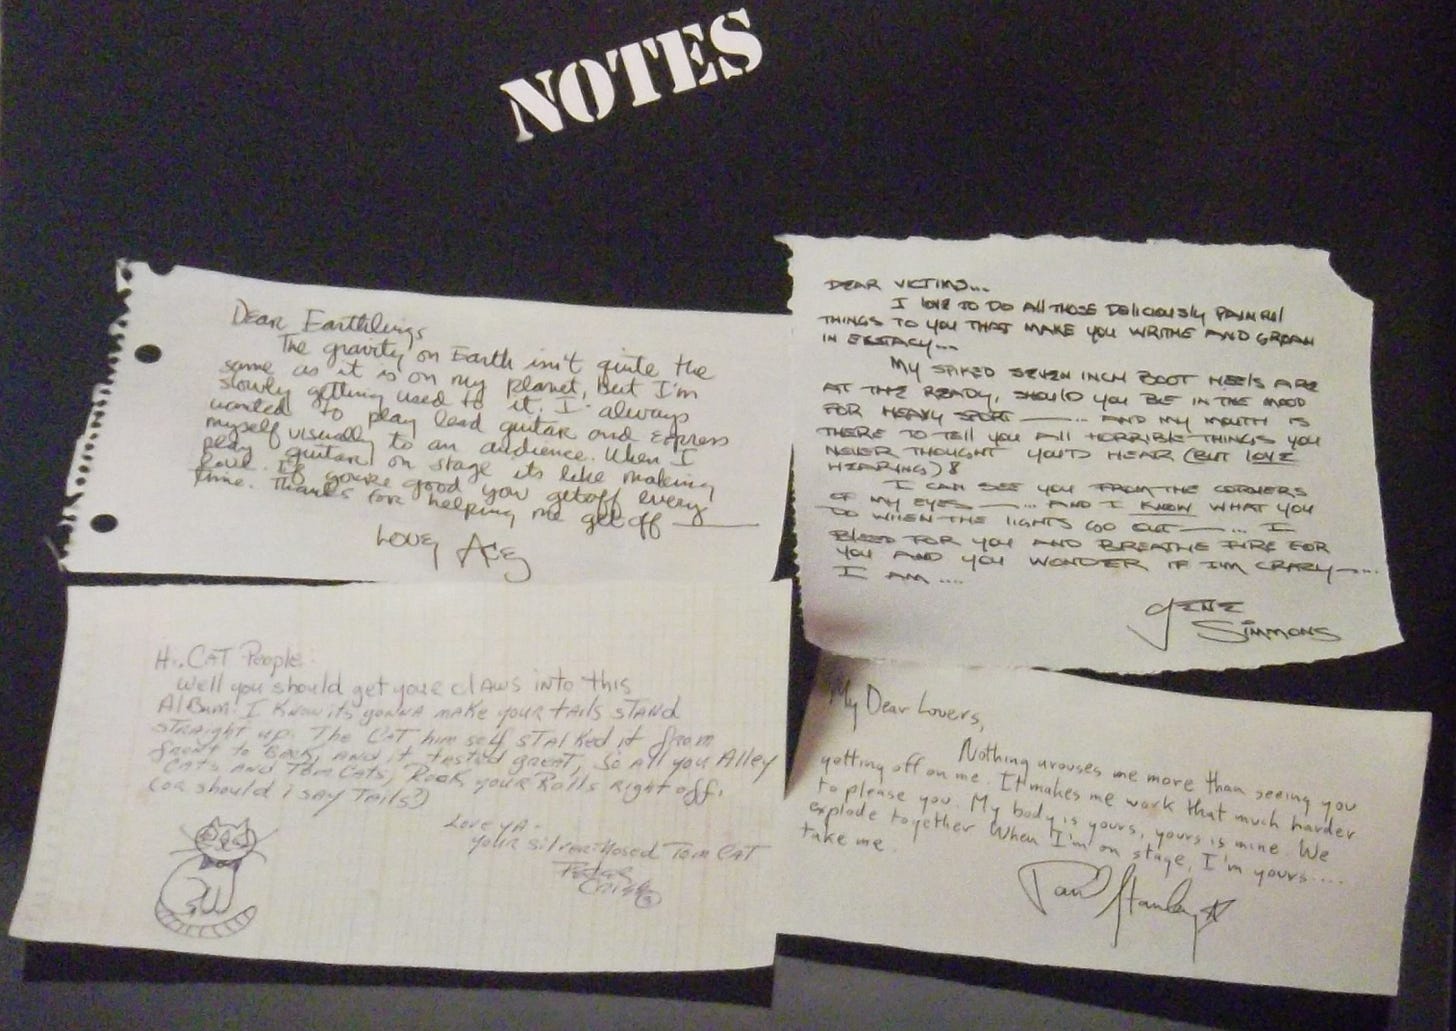 NOTES
Dear Earthlings
The gravity on Earth isn't quite the
same as it is on my planet, but I'm
slowly getting used to it. I always
wanted to play lead guitar and express
myself visually to an audience. When I
play guitar on stage its like making
love. If you're good you get off every
time. Thanks for helping me get off
Love, Ace
DEAR VICTIMS...
I love TO DO All THOSE DEliciously PAINFUl
THINGS TO YOU THAT MAKE YOU WRITHE AND GROAN
IN ECSTACY...
MY SPIKED SEVEN INCH BOOT HEElS ARE
AT THE READY, SHOUlD YOU BE IN THE MOOD
FOR HEAVY SPORT — ... AND MY MOUTH IS
THERE TO TEll YOU All HORRIBLE THINGS YOU
NEVER THOUGHT YOU'D HEAR (BUT LOVE
HEARING)
I CAN SEE YOU FROM THE CORNERS
OF MY EYES — ... AND I KNOW WHAT YOU
DO WHEN THE lIGHTS GO OUT — ... I
BlEED FOR YOU AND BREATHE FIRE FOR
YOU AND YOU WONDER IF I'M CRAZY — ...
I AM ....
GENE
SIMMONS
Hi. CAT People
Well you should get your clAws into this
AlBum. I Know its gonna make your tails stand
straight up. The CAT him self STAlked it from
front to Back, and it tasted great, so All you Alley
Cats and Tom Cats, Rock your Rolls Right off.
(or should i say Tails?)
Love yA-
your silver-Nosed Tom CAT
Peter
Criss
My Dear Lovers,
Nothing arouses me more than seeing you
getting off on me. It makes me work that much harder
to please you. My body is yours, yours is mine. We
explode together When I'm on stage, I'm yours....
take me.
Paul Stanley